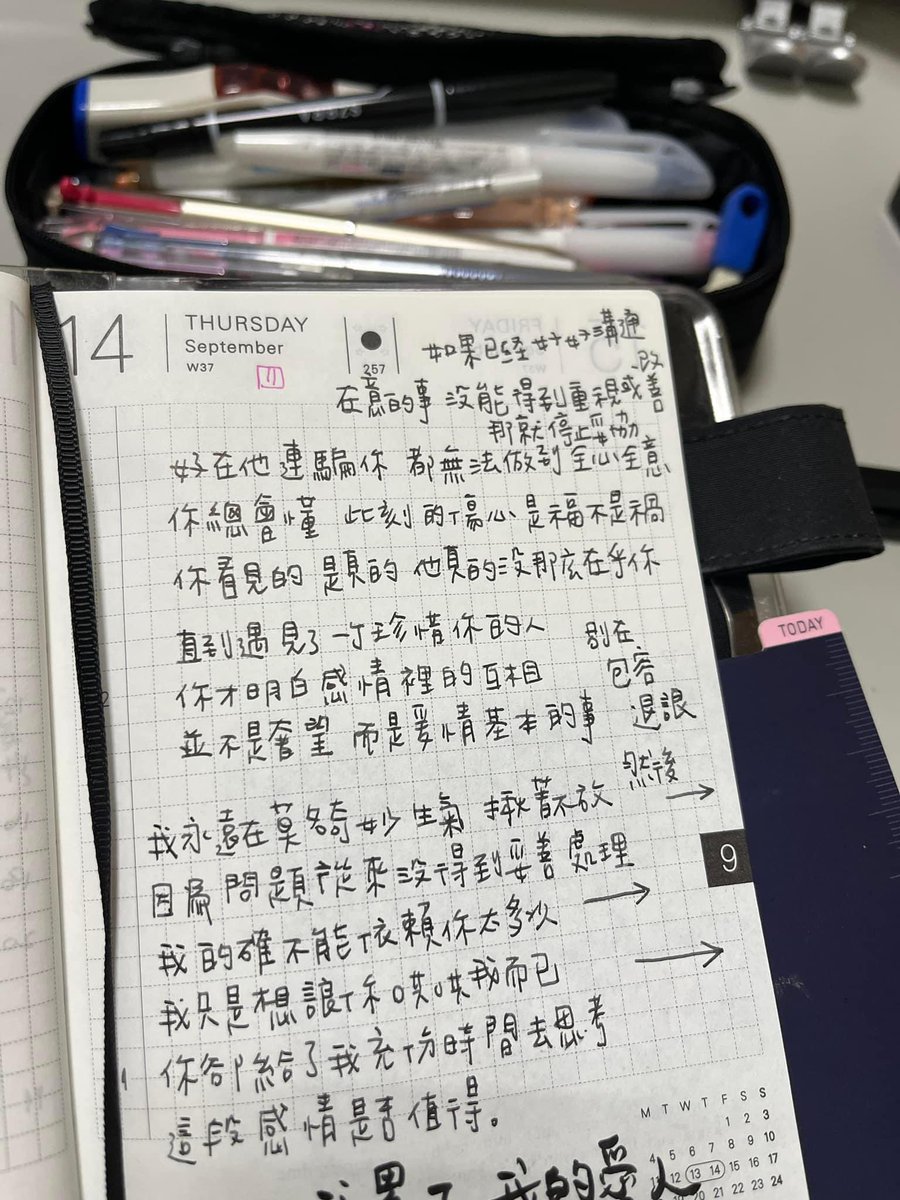 14
THURSDAY
September
W37
257
11
如果已经好好溝通
在意的事 沒能得到重視或改善
那就停止妥協
好在他連騙你 都無法做到全心全意
你總會懂 此刻的傷心是福不是禍
你看見的 是真的 他真的没那么在乎你
直到遇見了一个珍惜你的人
你才明白感情裡的互相
並不是奢望 而是爱情基本的事
別在
包容
退讓
然後
我永遠在莫名奇妙生氣 揪著不放 →
因為問題從來沒得到妥善處理
我的確不能依賴你太多少 →
我只是想讓你哄哄我而已 →
你卻給了我充份時間去思考
這段感情是否值得。
累了 我的爱人
TODAY
9
M T W T F S S
1 2 3
4 5 6 7 8 9 10
12 13 14 15 16 17
19 20 21 22 23 24